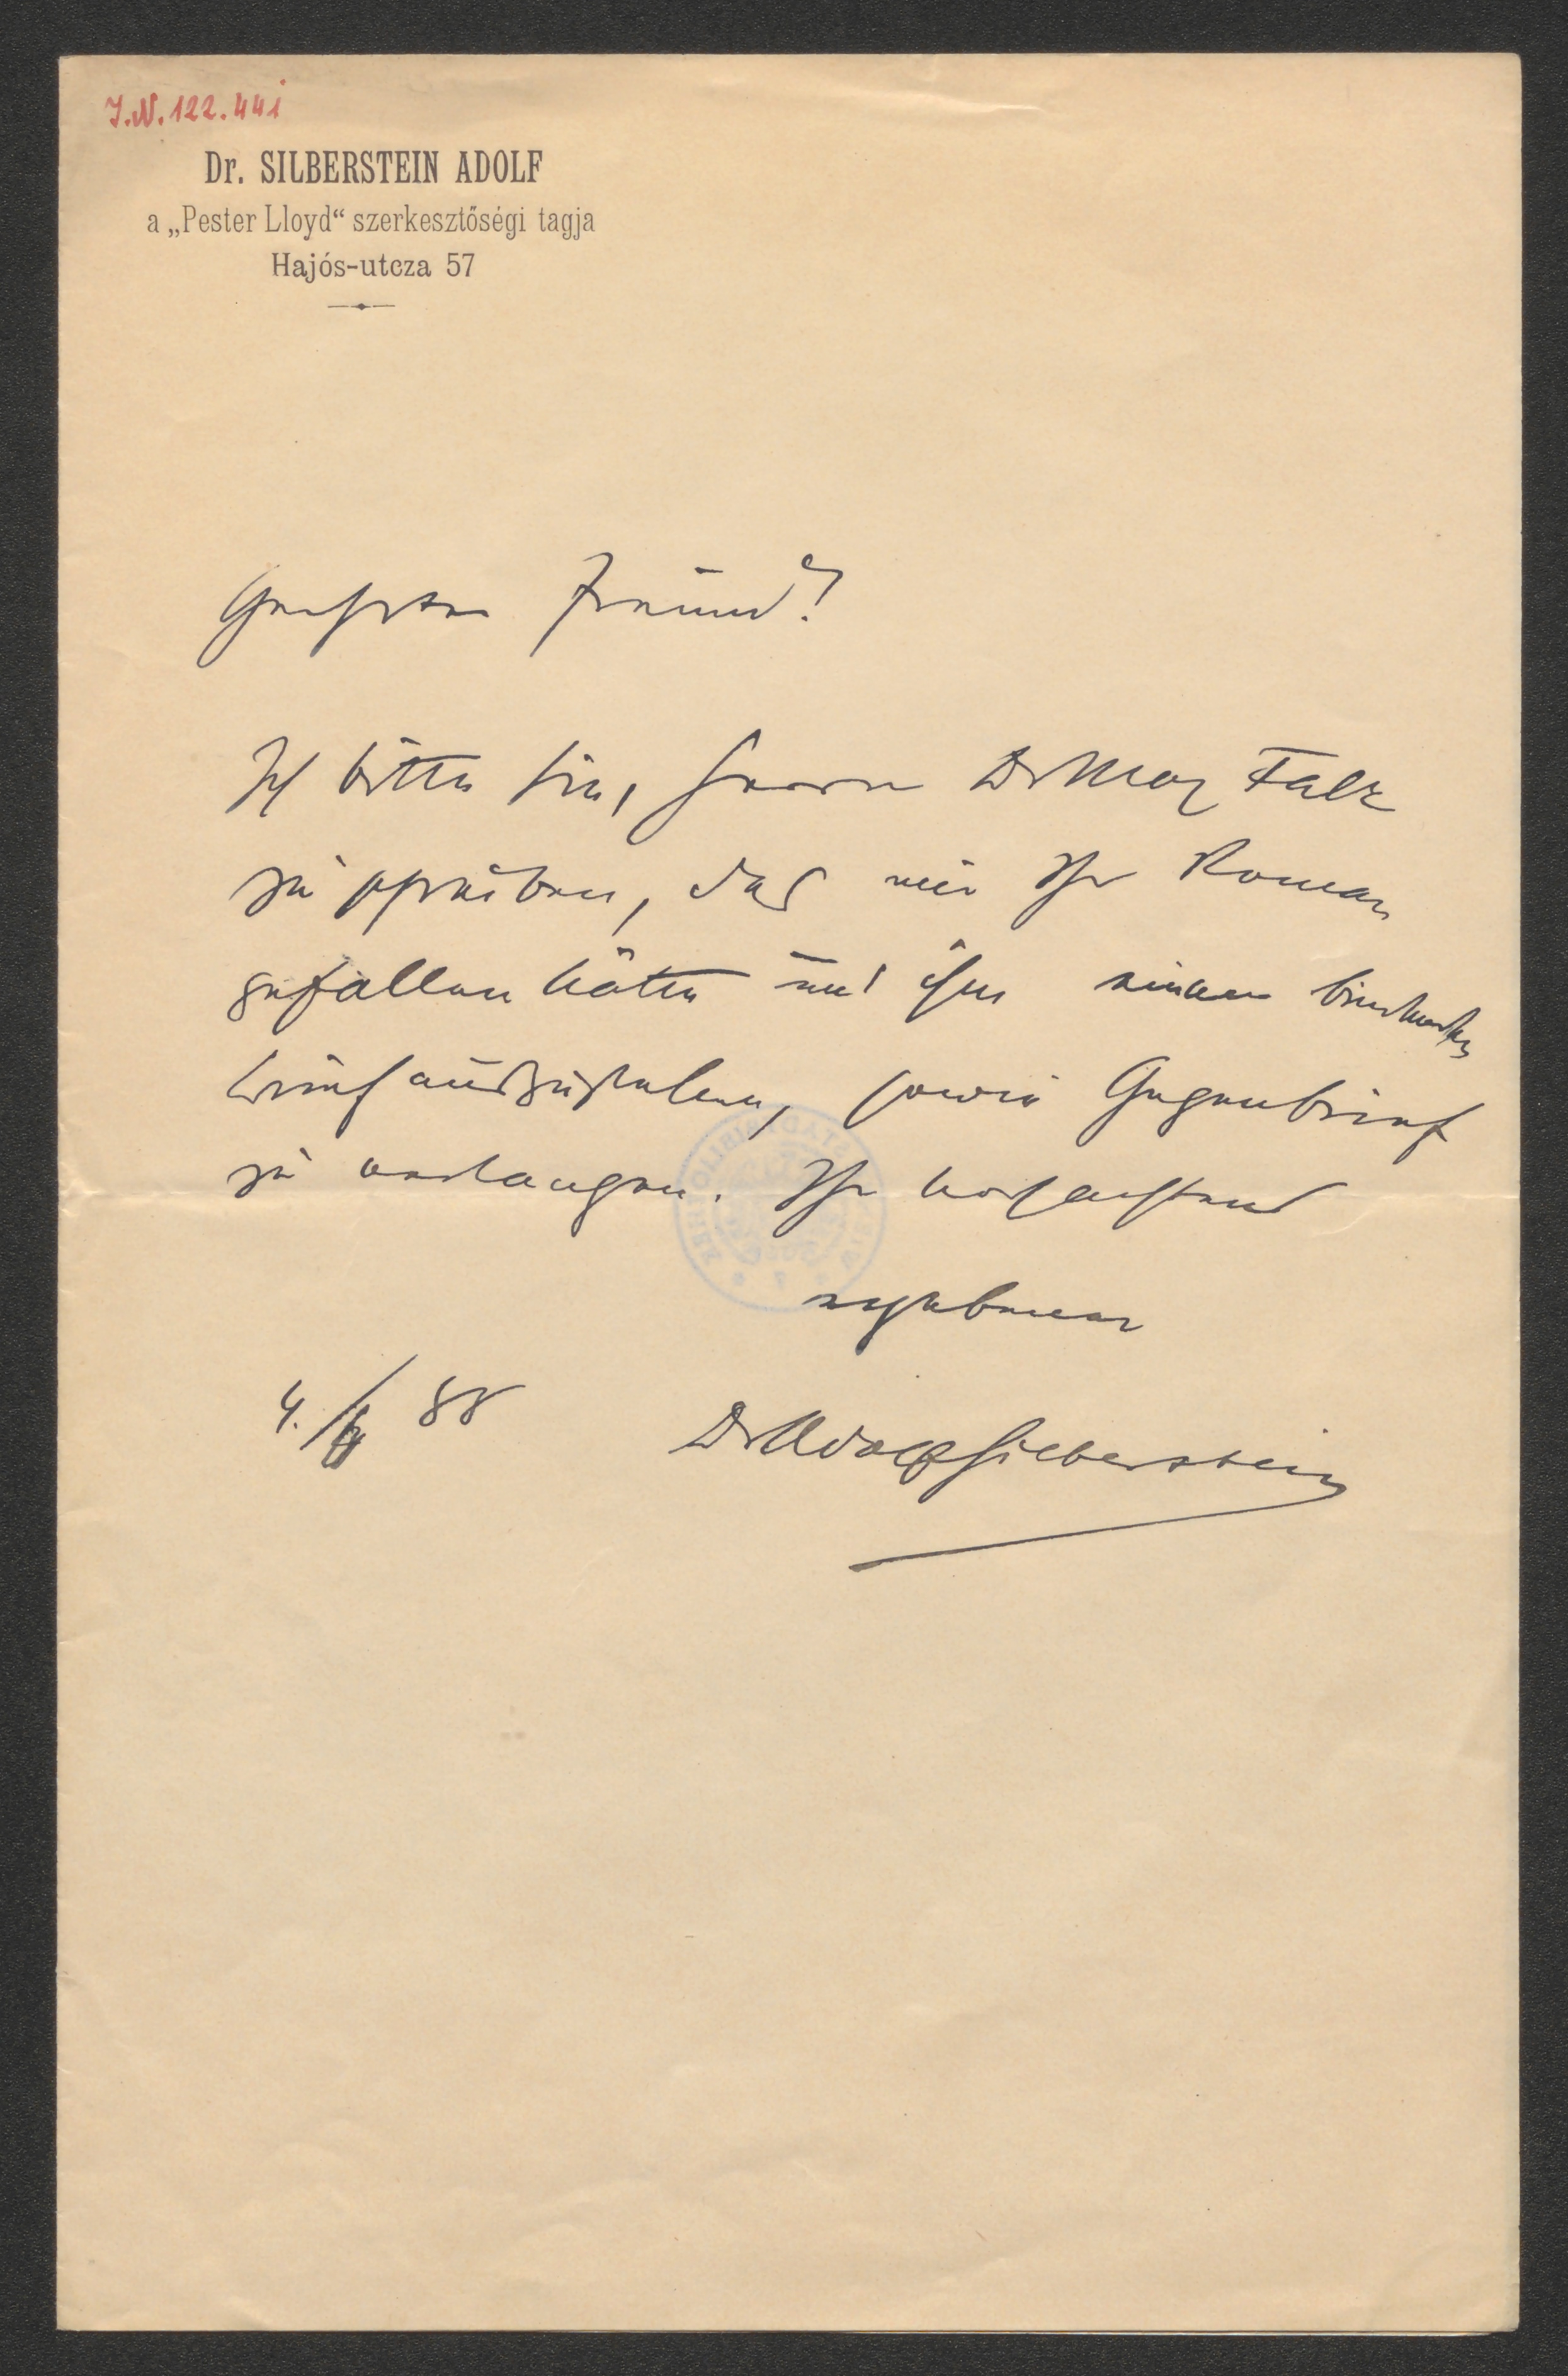 J.N. 122.441
Dr. SILBERSTEIN ADOLF
a „Pester Lloyd“ szerkesztőségi tagja
Hajós-utcza 57
Geehrter Freund!
Ich bitte Sie, Herrn Dr Max Falk
zu schreiben, daß mir Ihr Roman
gefallen hätte und ihm einen bindenden
Brief auszustellen, sowie Gegenbrief
zu verlangen. Ihr hochachtend
ergebener
4./ 88
Dr Adolf Silberstein